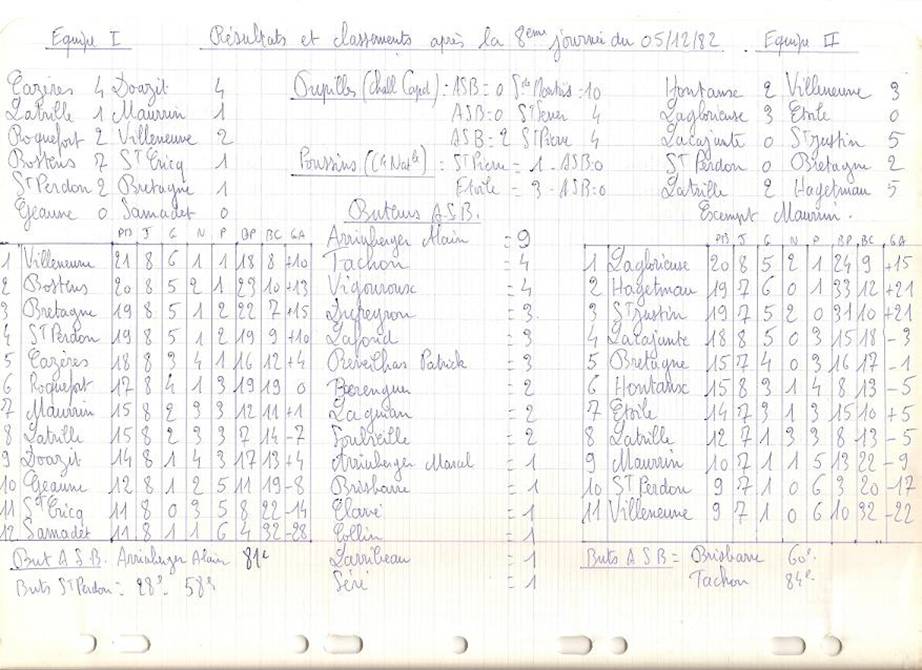 Equipe I Résultats et classements après la 8ème journée du 05/12/82. Equipe II
Cazères 4 Doazit 4
Latrille 1 Maurrin 1
Roquefort 2 Villeneuve 2
Bostens 7 St Cricq 1
St Perdon 2 Bretagne 1
Geaune 0 Samadet 0
Pupilles (Chall Capot) : ASB = 0 St Martin : 10
ASB = 0 St Sever 4
ASB = 2 St Pierre 4
Poussins (C4 Natle) : St Pierre = 1 - ASB : 0
Etoile = 3 - ASB : 0
Hontanx 2 Villeneuve 3
Laglorieuse 3 Etoile 0
Lacajunte 0 St Justin 5
St Perdon 0 Bretagne 2
Latrille 2 Hagetmau 5
Exempt Maurrin.
PTS J G N P BP BC GA
1 Villeneuve 21 8 6 1 1 18 8 +10
2 Bostens 20 8 5 2 1 23 10 +13
3 Bretagne 19 8 5 1 2 22 7 +15
4 St Perdon 19 8 5 1 2 19 9 +10
5 Cazères 18 8 3 4 1 16 12 +4
6 Roquefort 17 8 4 1 3 19 19 0
7 Maurrin 15 8 2 3 3 12 11 +1
8 Latrille 15 8 2 3 3 7 14 -7
9 Doazit 14 8 1 4 3 17 13 +4
10 Geaune 12 8 1 2 5 11 19 -8
11 St Cricq 11 8 0 3 5 8 22 -14
12 Samadet 11 8 1 1 6 4 32 -28
But ASB. Arrinberger Alain 81e
Buts St Perdon = 28e 58e
Buteurs A.S.B.
Arrinberger Alain = 9
Tachon = 4
Vigouroux = 4
Dupeyron = 3
Lafond = 3
Reveilhas Patrick = 3
Barenguer = 2
Laguian = 2
Soubieille = 2
Arrinberger Marcel = 1
Brisbarre = 1
Clavé = 1
Collin = 1
Larribeau = 1
Séré = 1
PTS J G N P BP BC GA
1 Laglorieuse 20 8 5 2 1 24 9 +15
2 Hagetmau 19 7 6 0 1 33 12 +21
3 St Justin 19 7 5 2 0 31 10 +21
4 Lacajunte 18 8 5 0 3 15 18 -3
5 Bretagne 15 7 4 0 3 16 17 -1
6 Hontanx 15 8 3 1 4 8 13 -5
7 Etoile 14 7 3 1 3 15 10 +5
8 Latrille 12 7 1 3 3 8 13 -5
9 Maurrin 10 7 1 1 5 13 22 -9
10 St Perdon 9 7 1 0 6 3 20 -17
11 Villeneuve 9 7 1 0 6 10 32 -22
Buts ASB = Brisbarre 60e
Tachon 84e